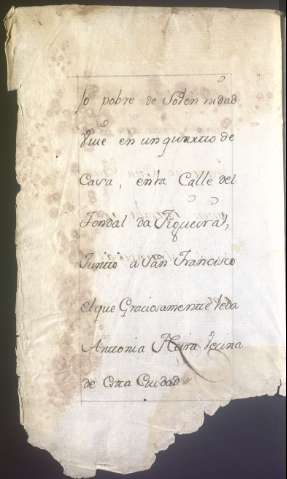 pobre de Solennidad
Vive en un quarto de
Casa, enla Calle del
Fondal da Figueira,
Junto à San Francisco
el que Graciosamente le da
Antonia Neira Vecina
de esta Ciudad